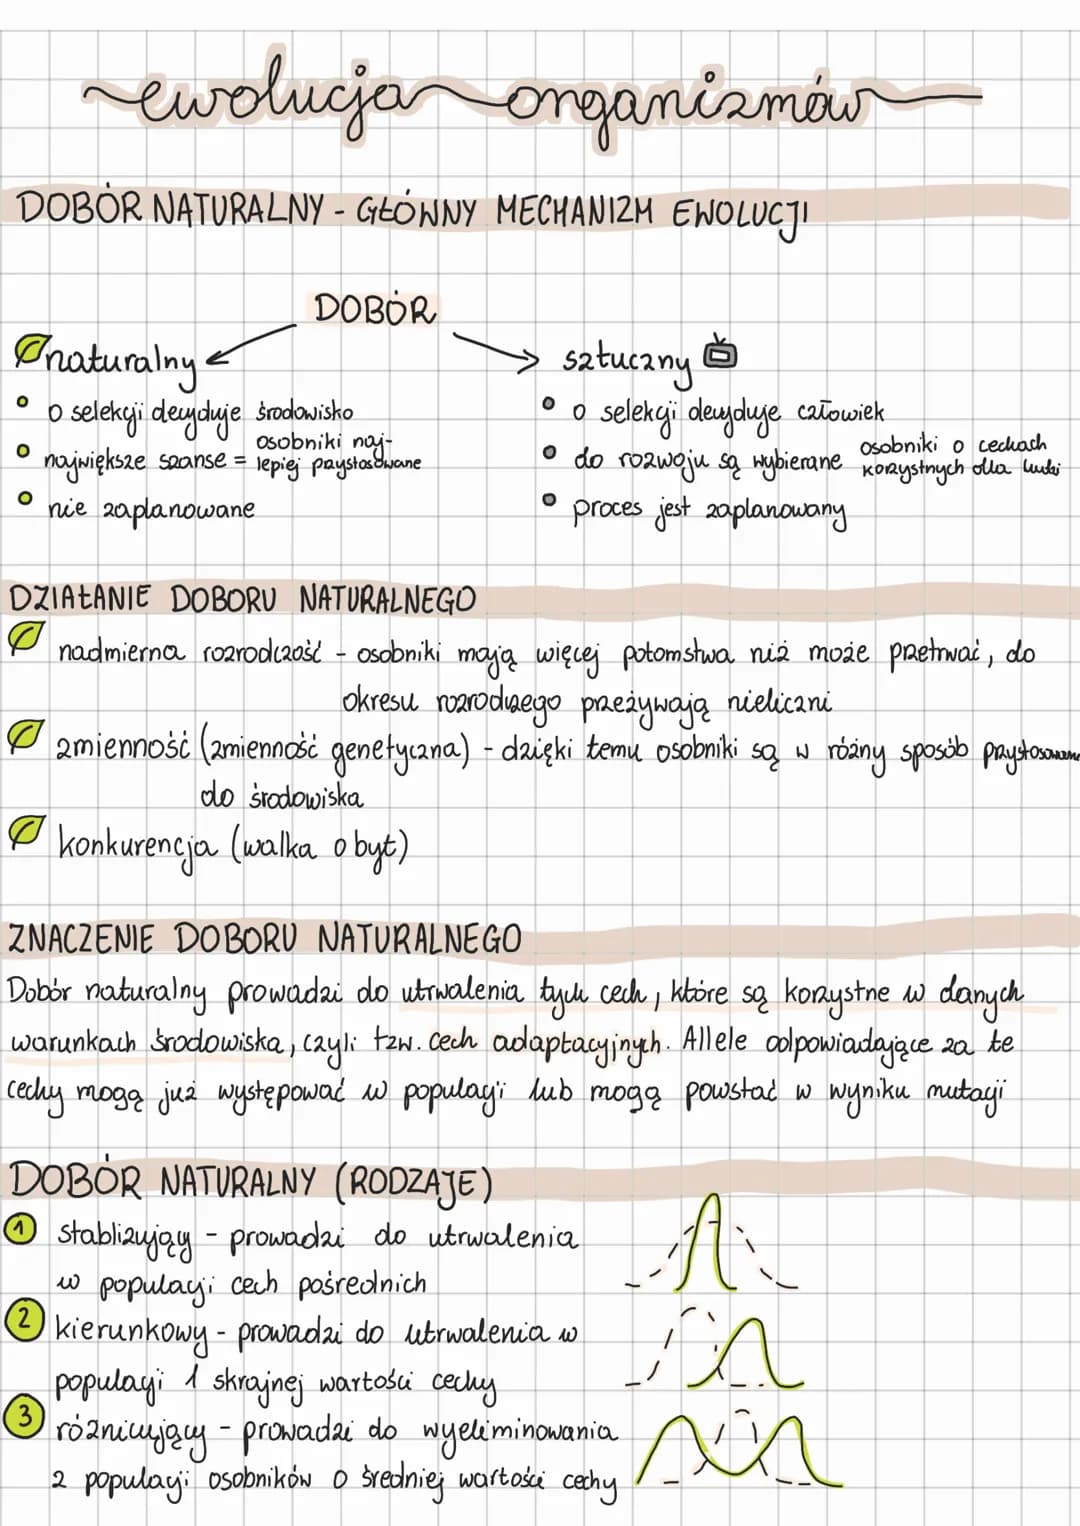 ewolucja organizmów
DOBÓR NATURALNY - GŁÓWNY MECHANIZM EWOLUCJI
DOBÓR
naturalny
sztuczny
o selekcji decyduje środowisko
największe szanse = osobniki naj-
lepiej przystosowane
nie zaplanowane
o selekcji decyduje człowiek
do rozwoju są wybierane osobniki o cechach
korzystnych dla ludzi
proces jest zaplanowany
DZIAŁANIE DOBORU NATURALNEGO
nadmierna rozrodczość - osobniki mają więcej potomstwa niż może przetrwać, do
okresu rozrodczego przeżywają nieliczni
zmienność (zmienność genetyczna) - dzięki temu osobniki są w różny sposób przystosowane
do środowiska
konkurencja (walka o byt)
ZNACZENIE DOBORU NATURALNEGO
Dobór naturalny prowadzi do utrwalenia tych cech, które są korzystne w danych
warunkach środowiska, czyli tzw. cech adaptacyjnych. Allele odpowiadające za te
cechy mogą już występować w populacji lub mogą powstać w wyniku mutacji
DOBÓR NATURALNY (RODZAJE)
1 stablizujący - prowadzi do utrwalenia
w populacji cech pośrednich
2 kierunkowy - prowadzi do utrwalenia w
populacji 1 skrajnej wartości cechy
3 różnicujący - prowadzi do wyeliminowania
z populacji osobników o średniej wartości cechy